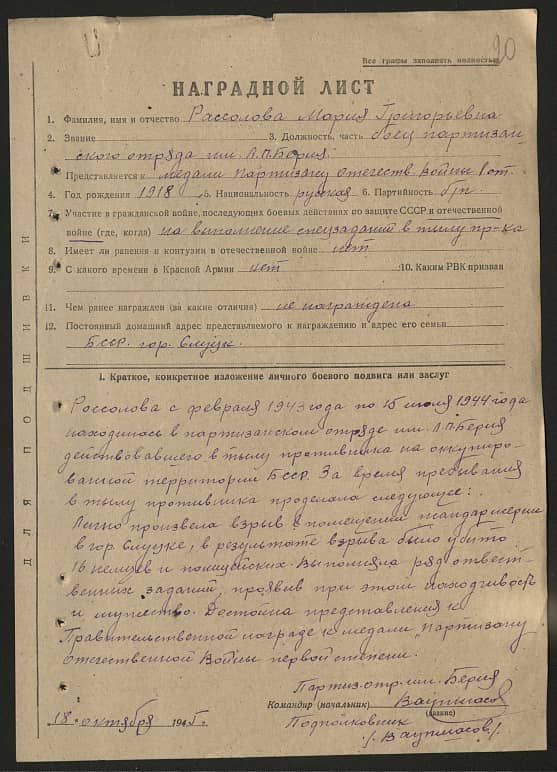 Все графы заполнять полностью
20
НАГРАДНОЙ ЛИСТ
1. Фамилия, имя и отчество Рассолова Мария Григорьевна
2. Звание 3. Должность, часть боец партизан-
ского отряда им Л.П.Берия.
Представляется к медали Партизану Отечеств. Войны 1 ст.
4. Год рождения 1918 5. Национальность русская 6. Партийность б/п.
7. Участие в гражданской войне, последующих боевых действиях по защите СССР и отечественной
войне (где, когда) на выполнение спецзаданий в тылу пр-ка
8. Имеет ли ранения и контузии в отечественной войне нет
9. С какого времени в Красной Армии нет 10. Каким РВК призван
11. Чем ранее награжден (за какие отличия) не награждена
12. Постоянный домашний адрес представляемого к награждению и адрес его семьи
БССР. гор. Слуцк.
ДЛЯ ПОДШИВКИ
I. Краткое, конкретное изложение личного боевого подвига или заслуг
Рассолова с февраля 1943 года по 15 июля 1944 года
находилось в партизанском отряде им. Л.П.Берия
действовавшего в тылу противника на оккупиро-
ванной территории БССР. За время пребывания
в тылу противника проделала следующее:
Лично произвела взрыв в помещении жандармерии
в гор. Слуцке, в результате взрыва было убито
16 немцев и полицейских. Выполняла ряд ответст-
венных заданий, проявив при этом находчивость
и мужество. Достойна представления к
Правительственной награде к медали "Партизану
отечественной Войны первой степени.
Партиз. отр. им. Берия
Командир (начальник) Ваупшасов
(звание)
Подполковник
/. Ваупшасов/.
18. октября 1945г.